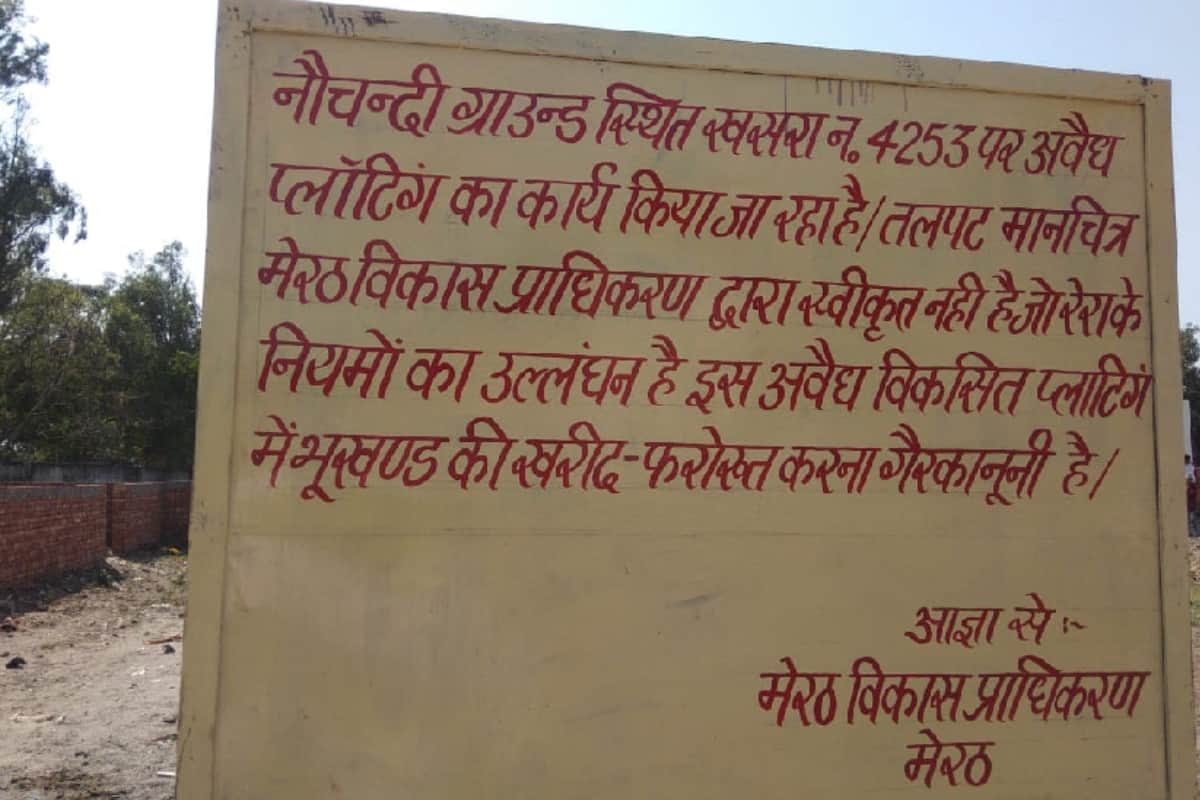 नौचन्दी ग्राउन्ड स्थित खसरा न. 4253 पर अवैध
प्लॉटिगं का कार्य किया जा रहा है। तलपट मानचित्र
मेरठ विकास प्राधिकरण द्वारा स्वीकृत नही है जो रेरा के
नियमों का उल्लंघन है इस अवैध विकसित प्लाटिगं
में भूखण्ड की खरीद-फरोख्त करना गैरकानूनी है।
आज्ञा से :-
मेरठ विकास प्राधिकरण
मेरठ